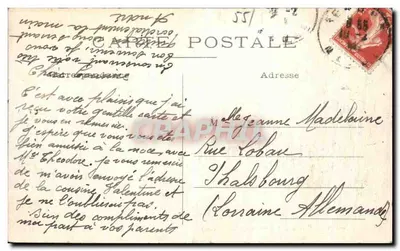 CARTE POSTALE
Correspondance
Adresse
55
Chère Cousine
C'est avec plaisir que j'ai
reçu votre gentille carte et
je vous en remercie.
J'espère que vous vous êtes
bien amusée à la noce, avec
Mr Theodore. Je vous remercie
de m'avoir envoyé l'adresse
de la cousine Valentine et
je ne l'oublierai pas.
Bien des compliments de
ma part à vos parents
En
bon souvenir, je vous
cordialement la main
André
Melle Jeanne Madelaine
Rue Lobau
Phalsbourg
(Lorraine Allemande)